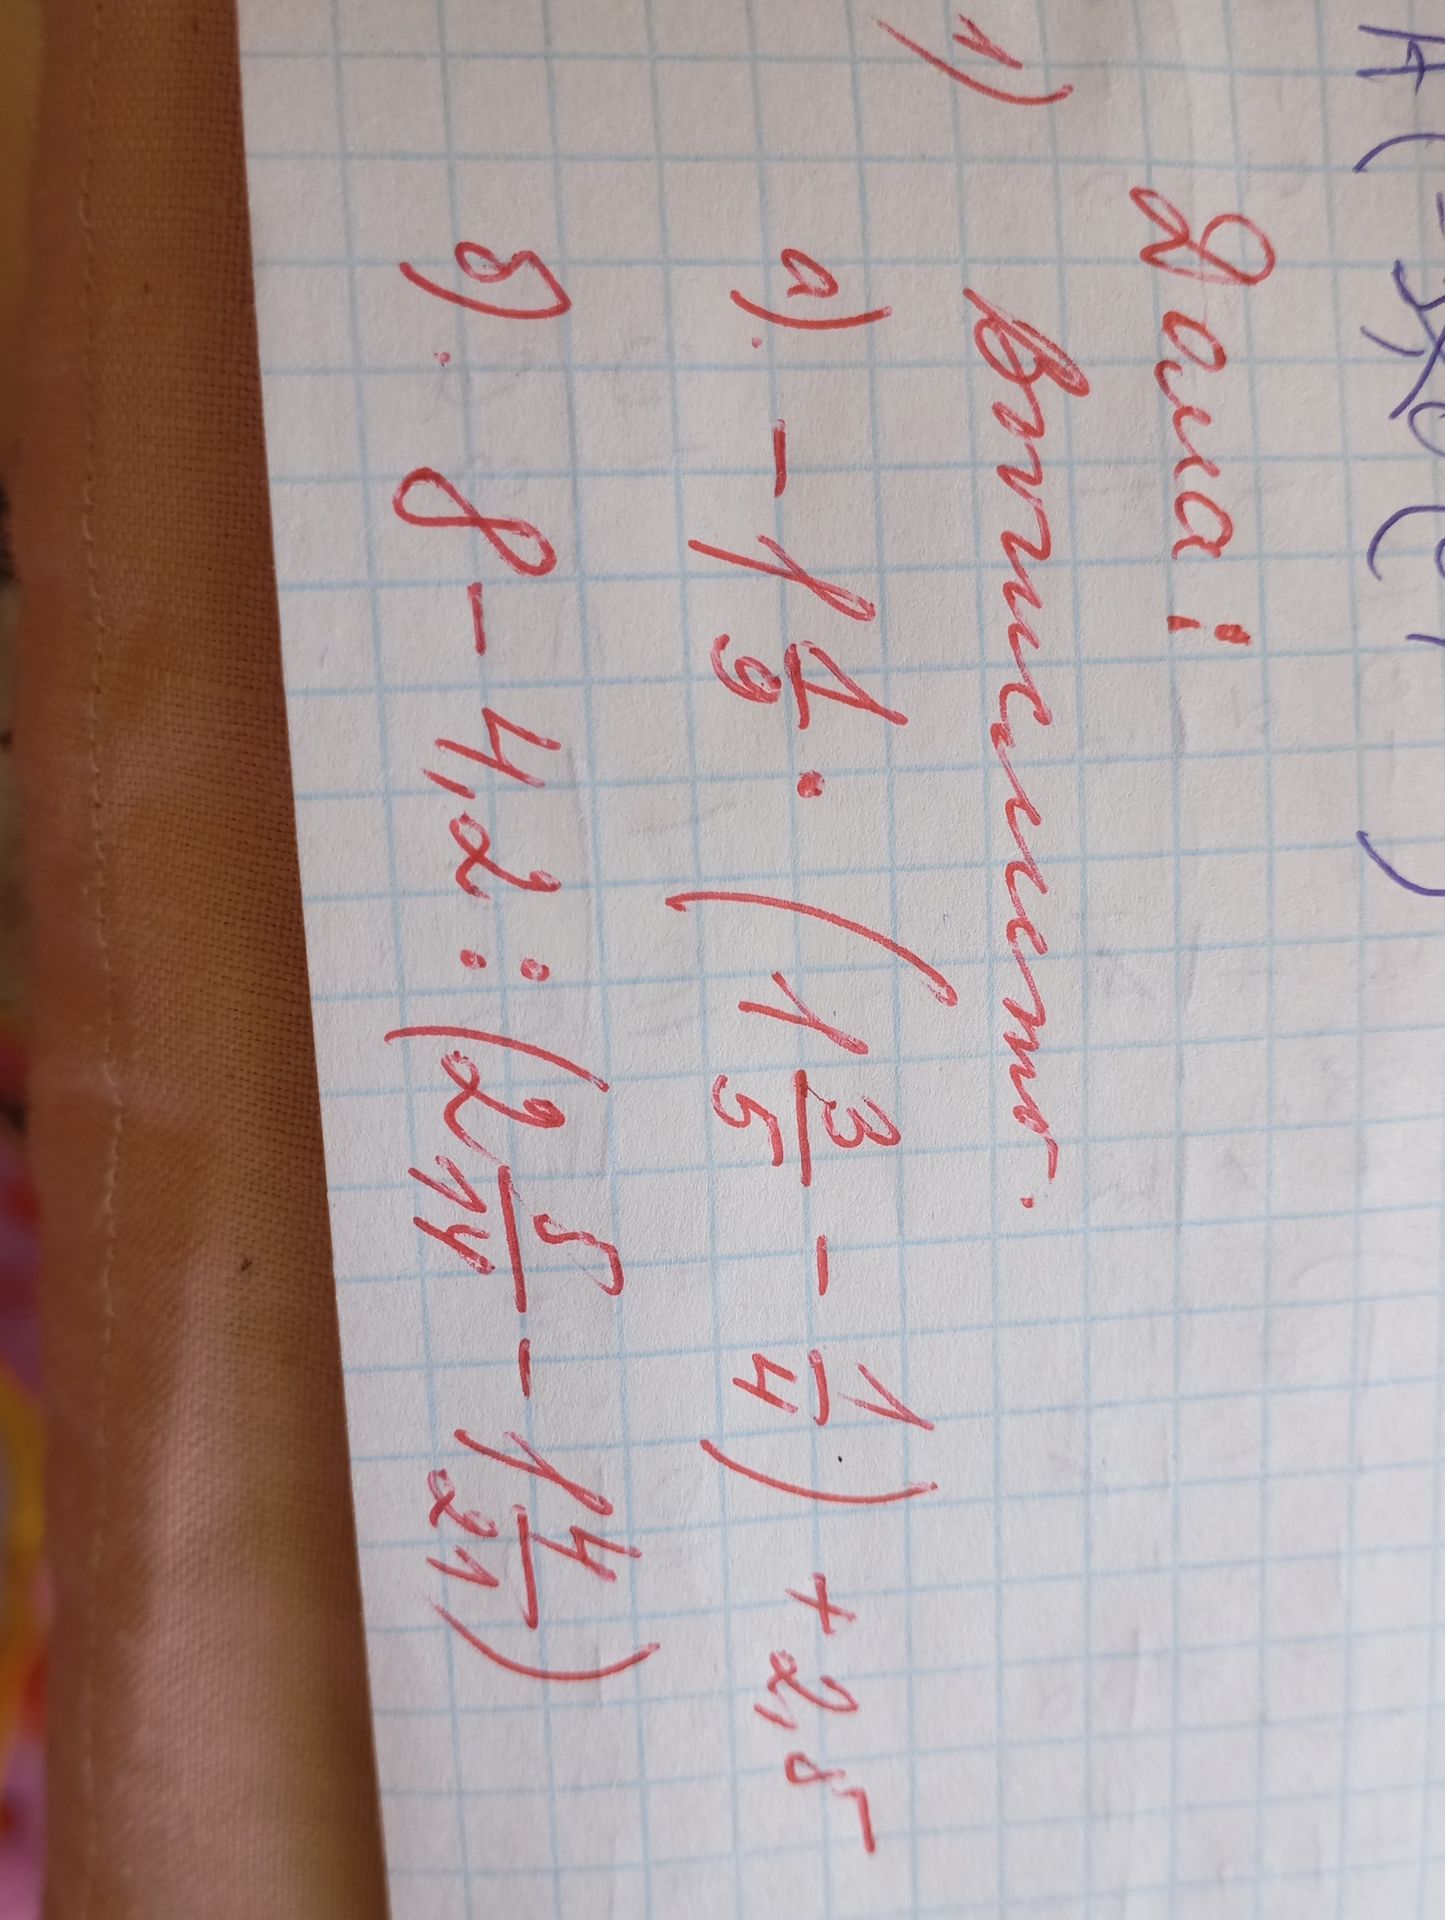 Дома:
1) Вычислить.
а). - 1 1/9 · (1 3/5 - 1/4) + 2,5
б). 8 - 4,2 : (2 5/14 - 1 4/21)